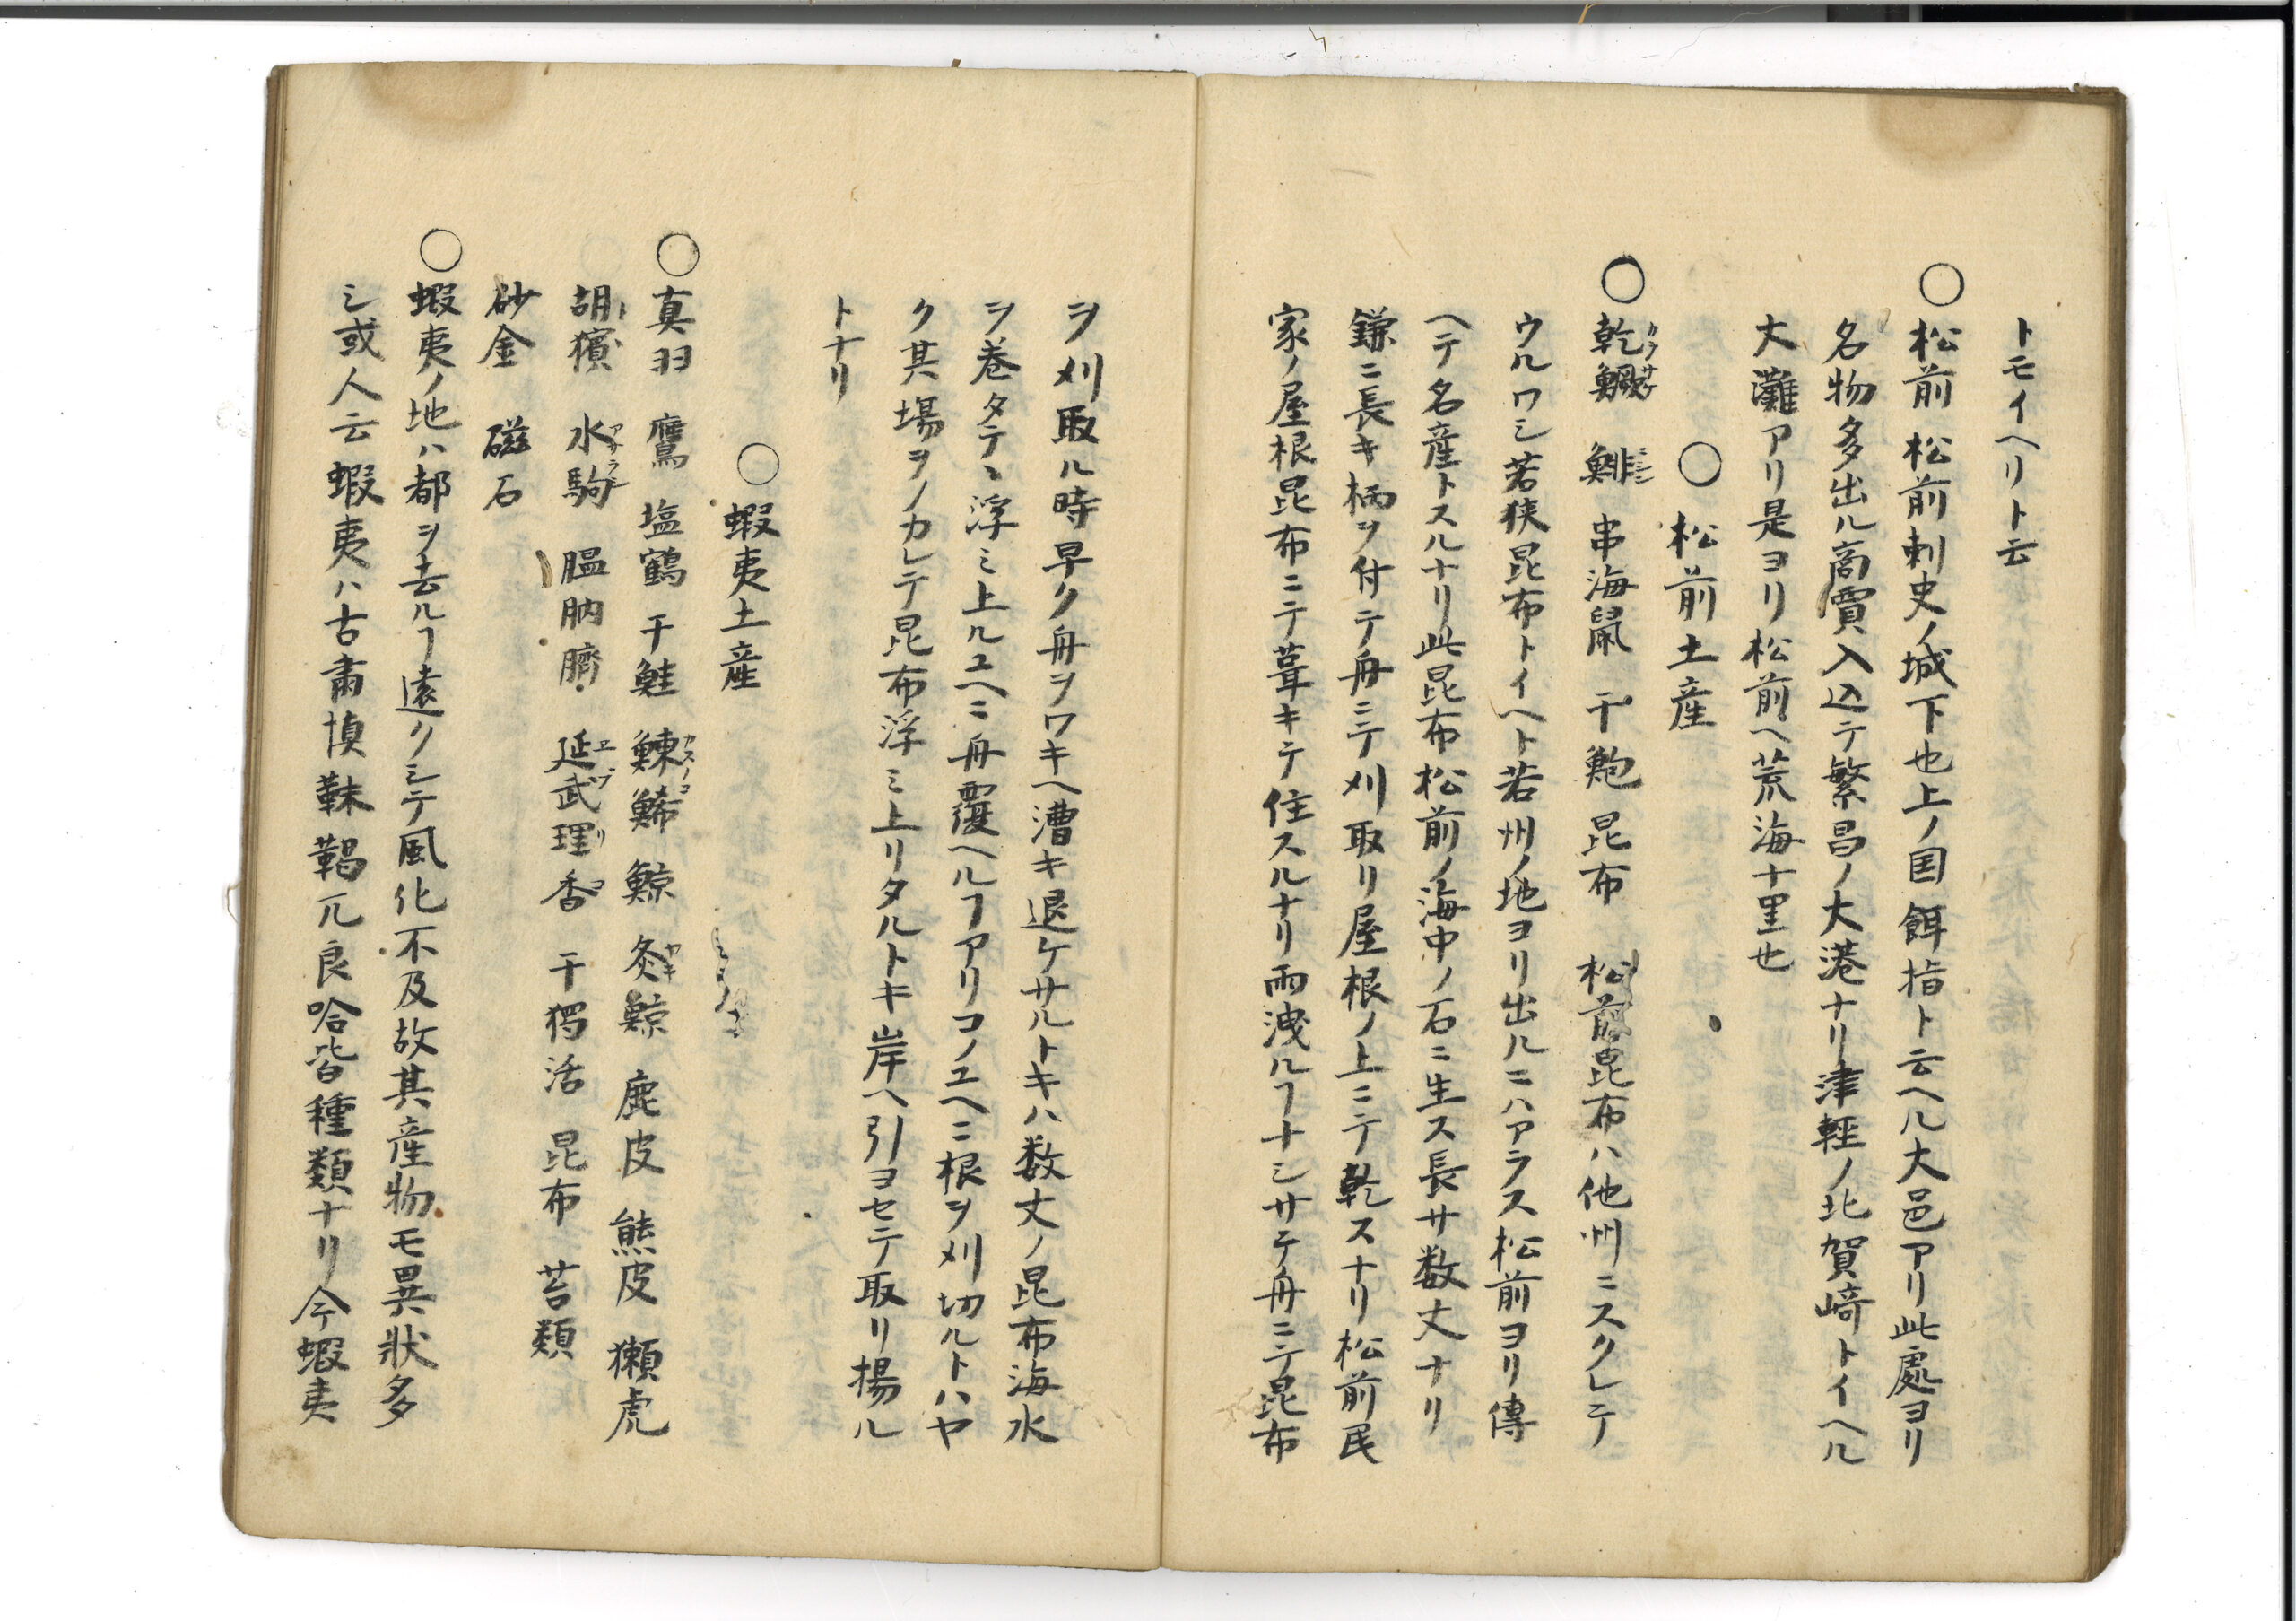 トモイヘリト云
○松前 松前刺史ノ城下也上ノ国餌指ト云ヘル大邑アリ此處ヨリ
名物多出ル商賈入込テ繁昌ノ大港ナリ津輕ノ北賀﨑トイヘル
大灘アリ是ヨリ松前ヘ荒海十里也
○松前土産
○乾鱖 鯡 串海鼠 干鮑 昆布 松前昆布ハ他州ニスクレテ
ウルワシ若狭昆布トイヘト若州ノ地ヨリ出ルニハアラス松前ヨリ傳
ヘテ名産トスルナリ此昆布松前ノ海中ノ石ニ生ス長サ数丈ナリ
鎌ニ長キ柄ヲ付テ舟ニテ刈取リ屋根ノ上ニテ乾スナリ松前民
家ノ屋根昆布ニテ葺キテ住スルナリ雨洩ルヿナシサテ舟ニテ昆布
ヲ刈取ル時早ク舟ヲワキヘ漕キ退ケサルトキハ数丈ノ昆布海水
ヲ巻タテヽ浮ミ上ルユヘニ舟覆ヘルヿアリコノユヘニ根ヲ刈切ルトハヤ
ク其場ヲノカレテ昆布浮ミ上リタルトキ岸ヘ引ヨセテ取リ揚ル
トナリ
○蝦夷土産
○真羽 鷹 塩鶴 干鮭 鰊鯑 鯨 灸鯨 鹿皮 熊皮 獺虎
胡獱 水駒 膃肭臍 延武理香 干獨活 昆布 苔類
砂金 磁石
○蝦夷ノ地ハ都ヲ去ルヿ遠クシテ風化不及故其産物モ異狀多
シ或人云蝦夷ハ古粛慎靺鞨兀良哈皆種類ナリ今蝦夷